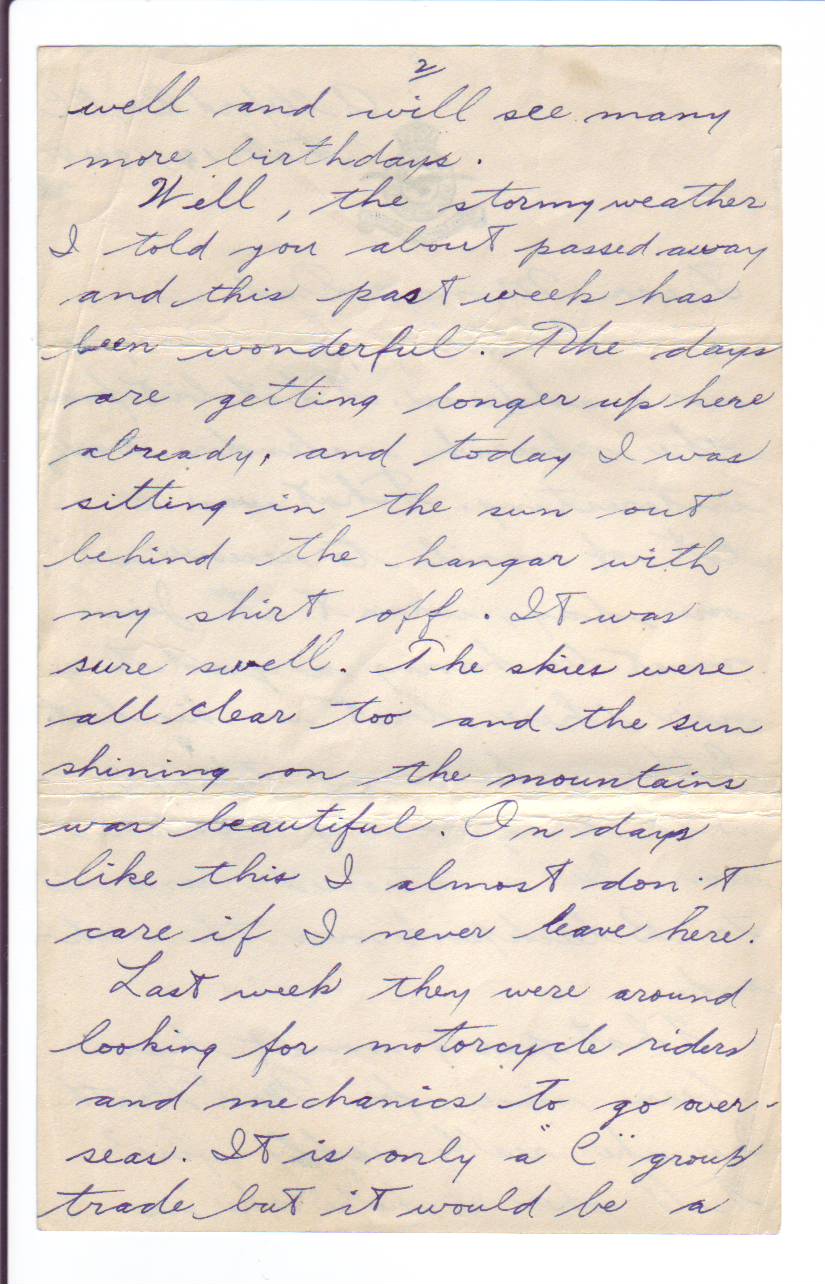 2
well and will see many
more birthdays.
Well, the stormy weather
I told you about passed away
and this past week has
been wonderful. The days
are getting longer up here
already, and today I was
sitting in the sun out
behind the hangar with
my shirt off. It was
sure swell. The skies were
all clear too and the sun
shining on the mountains
was beautiful. On days
like this I almost don't
care if I never leave here.
Last week they were around
looking for motorcycle riders
and mechanics to go over-
seas. It is only a "C" group
trade but it would be a